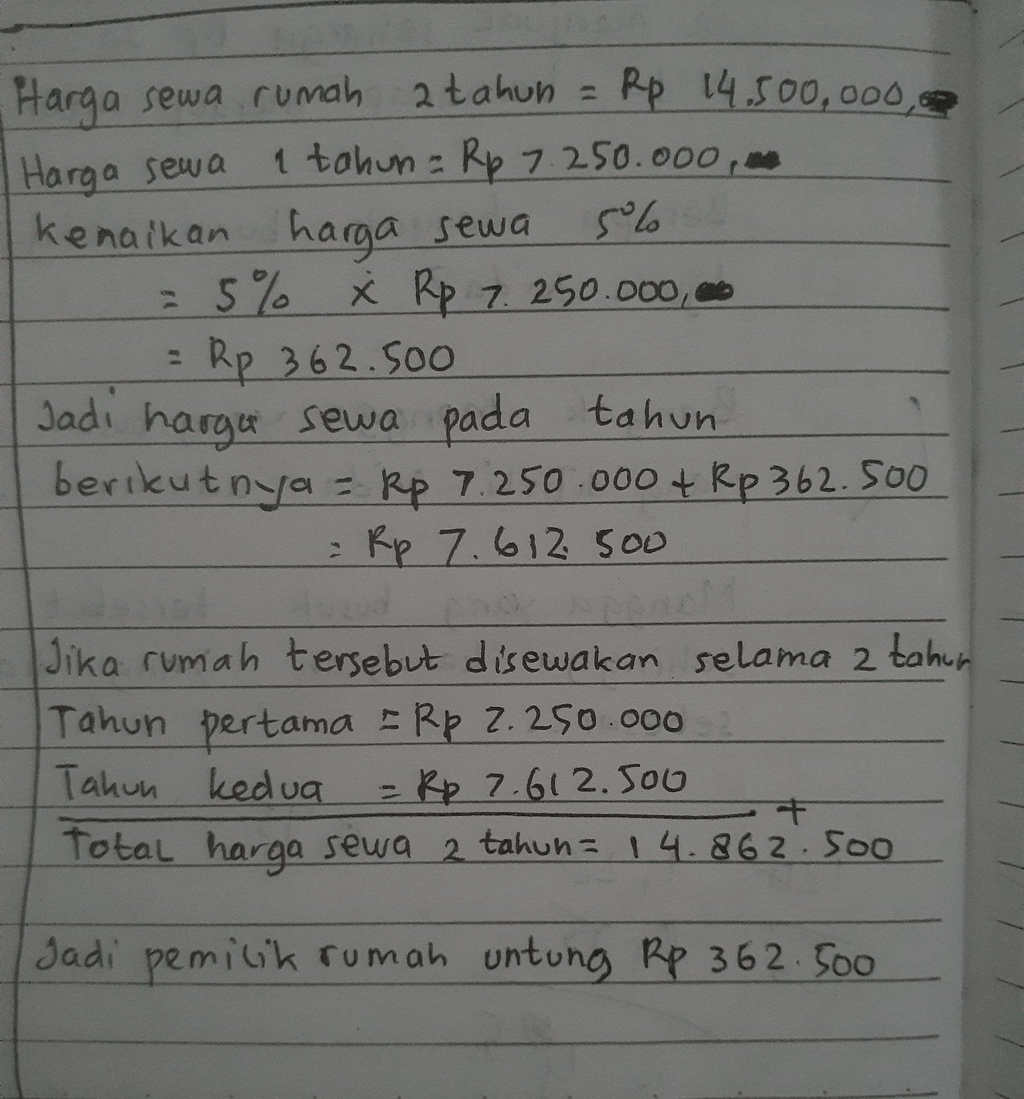 Harga sewa rumah 2 tahun = Rp 14.500,000,
Harga sewa 1 tahun = Rp 7.250.000,
kenaikan harga sewa 5%
= 5% x Rp 7.250.000,
= Rp 362.500
Jadi harga sewa pada tahun
berikutnya = Rp 7.250.000 + Rp 362.500
= Rp 7.612.500
Jika rumah tersebut disewakan selama 2 tahun
Tahun pertama = Rp 7.250.000
Tahun kedua = Rp 7.612.500
+
Total harga sewa 2 tahun = 14.862.500
Jadi pemilik rumah untung Rp 362.500